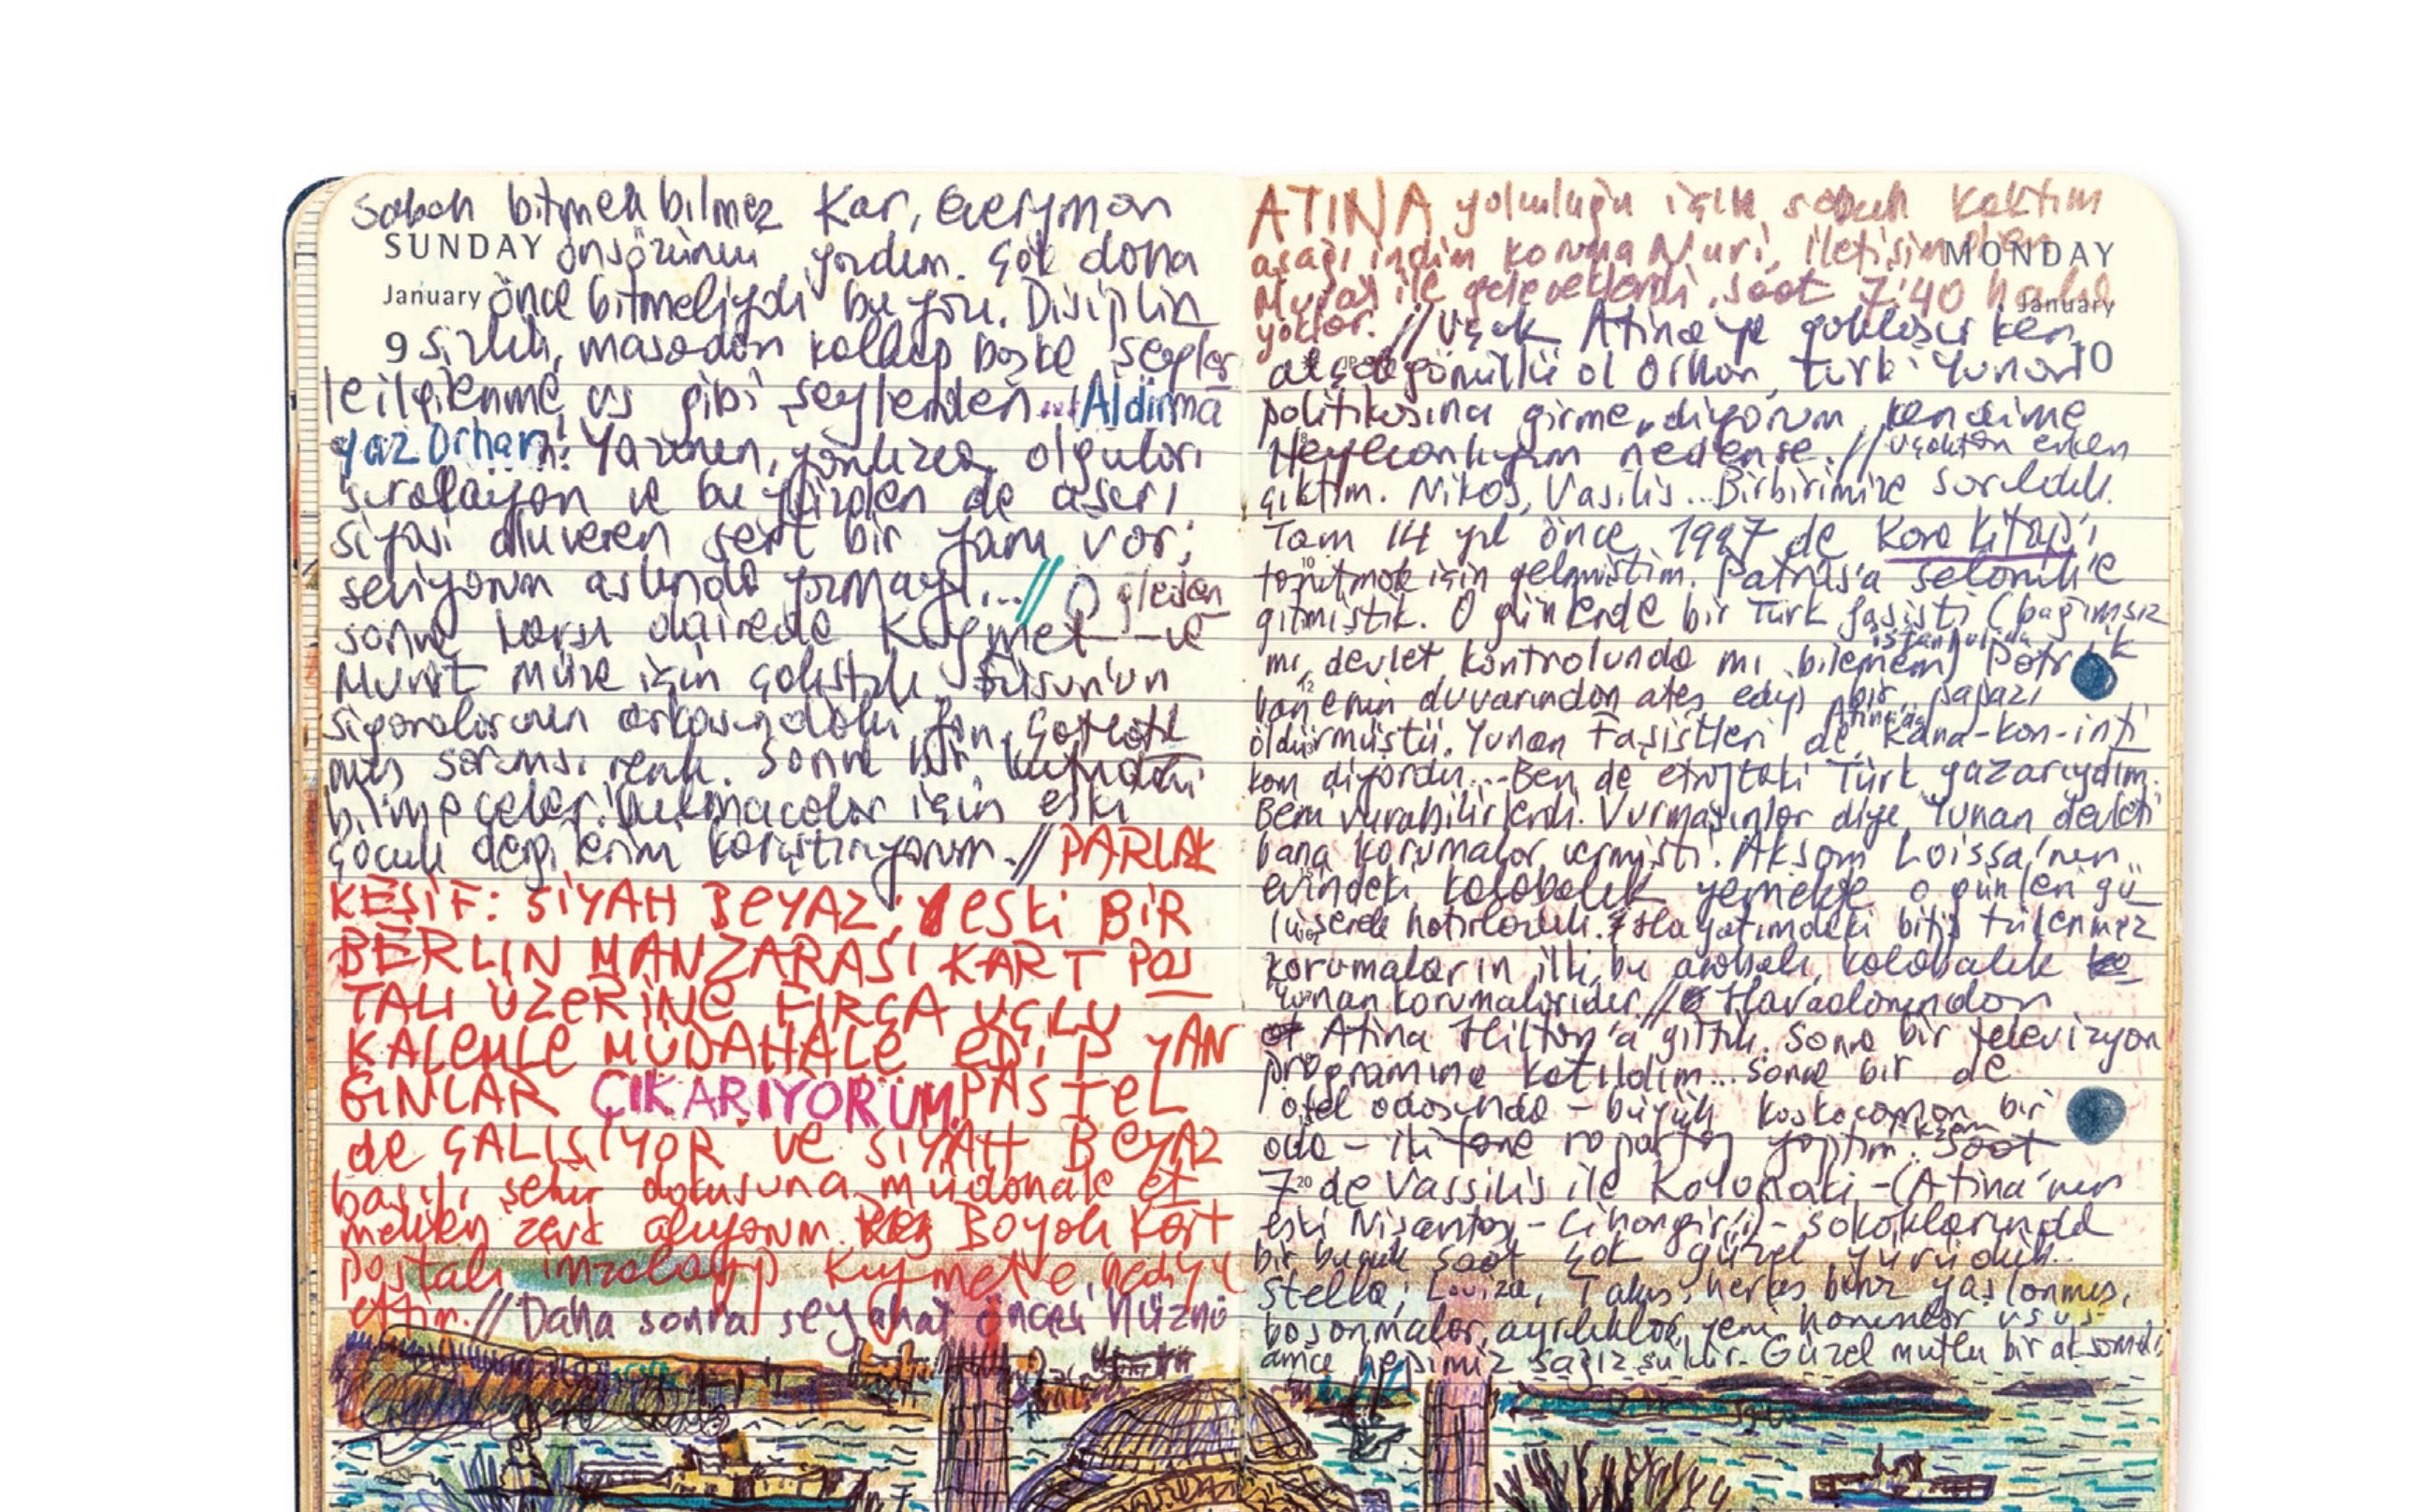 Sabah bitmek bilmez Kar, Everyman
SUNDAY önsözünü yazdım. Çok daha
January önce bitmeliydi bu yazı. Disiplin
9 sizlik, masadan kalkıp başka şeyler
le ilgilenme vs gibi şeylerden... Aldırma
yaz Orhan! Yazının, yalnızca olguları
sıralayan ve bu yüzden de aşırı
siyasi oluveren sert bir yanı var;
seviyorum aslında yazmayı... // Öğleden
sonra karşı dairede Kıymet ve
Murat müze için çalıştık. Füsun'un
sigaralarının arkasındaki fon,
sarımsı renk. Sonra bir,
bilmeceler, bulmacalar için eski
çocuk dergilerini karıştırıyorum. // PARLAK
KEŞİF: SİYAH BEYAZ, ESKİ BİR
BERLİN MANZARASI KARTPOS
TALI ÜZERİNE FIRÇA UÇLU
KALEMLE MÜDAHALE EDİP YAN
GINLAR ÇIKARIYORUM. PASTEL
de ÇALIŞIYOR ve SİYAH BEYAZ
basılı şehir dokusuna müdahale et
mekten zevk alıyorum. Boyalı kart
postalı imzalayıp Kıymet'e hediye
ettim. // Daha sonra seyahat öncesi hüznü
ATİNA yolculuğu için sabah kalktım
aşağı indim koruma Nuri, İletişim'den MONDAY
Murat ile geleceklerdi. Saat 7:40 hâlâ January
yoklar. // Uçak Atina'ya yaklaşırken 10
alçakgönüllü ol Orhan, türk-Yunan
politikasına girme, diyorum kendime
Heyecanlıyım nedense. // Uçaktan erken
çıktım. Nikos, Vasilis... Birbirimize sarıldık.
Tam 14 yıl önce, 1997 de Kara Kitap'ı
tanıtmak için gelmiştim. Patras'a Selanik'e
gitmiştik. O günlerde bir Türk faşisti (bağımsız
mı, devlet kontrolunda mı bilemem) İstanbul'da Patrik
hanenin duvarından ateş edip bir papazı
öldürmüştü. Yunan Faşistleri de Atina'da, kana-kan-inti
kam diyordu... Ben de etraftaki Türk yazarıydım.
Beni vurabilirlerdi. Vurmasınlar diye Yunan devleti
bana korumalar vermişti. Akşam Loissa'nın
evindeki kalabalık yemekte o günleri gü
lüşerek hatırladık. Hayatımdaki bitip tükenmez
korumaların ilki, bu arabalı, kalabalık
Yunan korumalarıdır. // Havaalanından
Atina Hilton'a gittik. Sonra bir televizyon
programına katıldım... Sonra bir de
otel odasında - büyük koskocaman bir
oda - iki tane roportaj yaptım. Akşam saat
7 de Vassilis ile Kolonaki - (Atina'nın
eski Nişantaşı - Cihangir'i) - sokaklarında
bir buçuk saat çok güzel yürüdük.
Stella, Louiza, Takis, herkes biraz yaşlanmış,
boşanmalar, ayrılıklar, yeni hanımlar vs vs
hepimiz sağız şükür. Güzel mutlu bir akşamdı